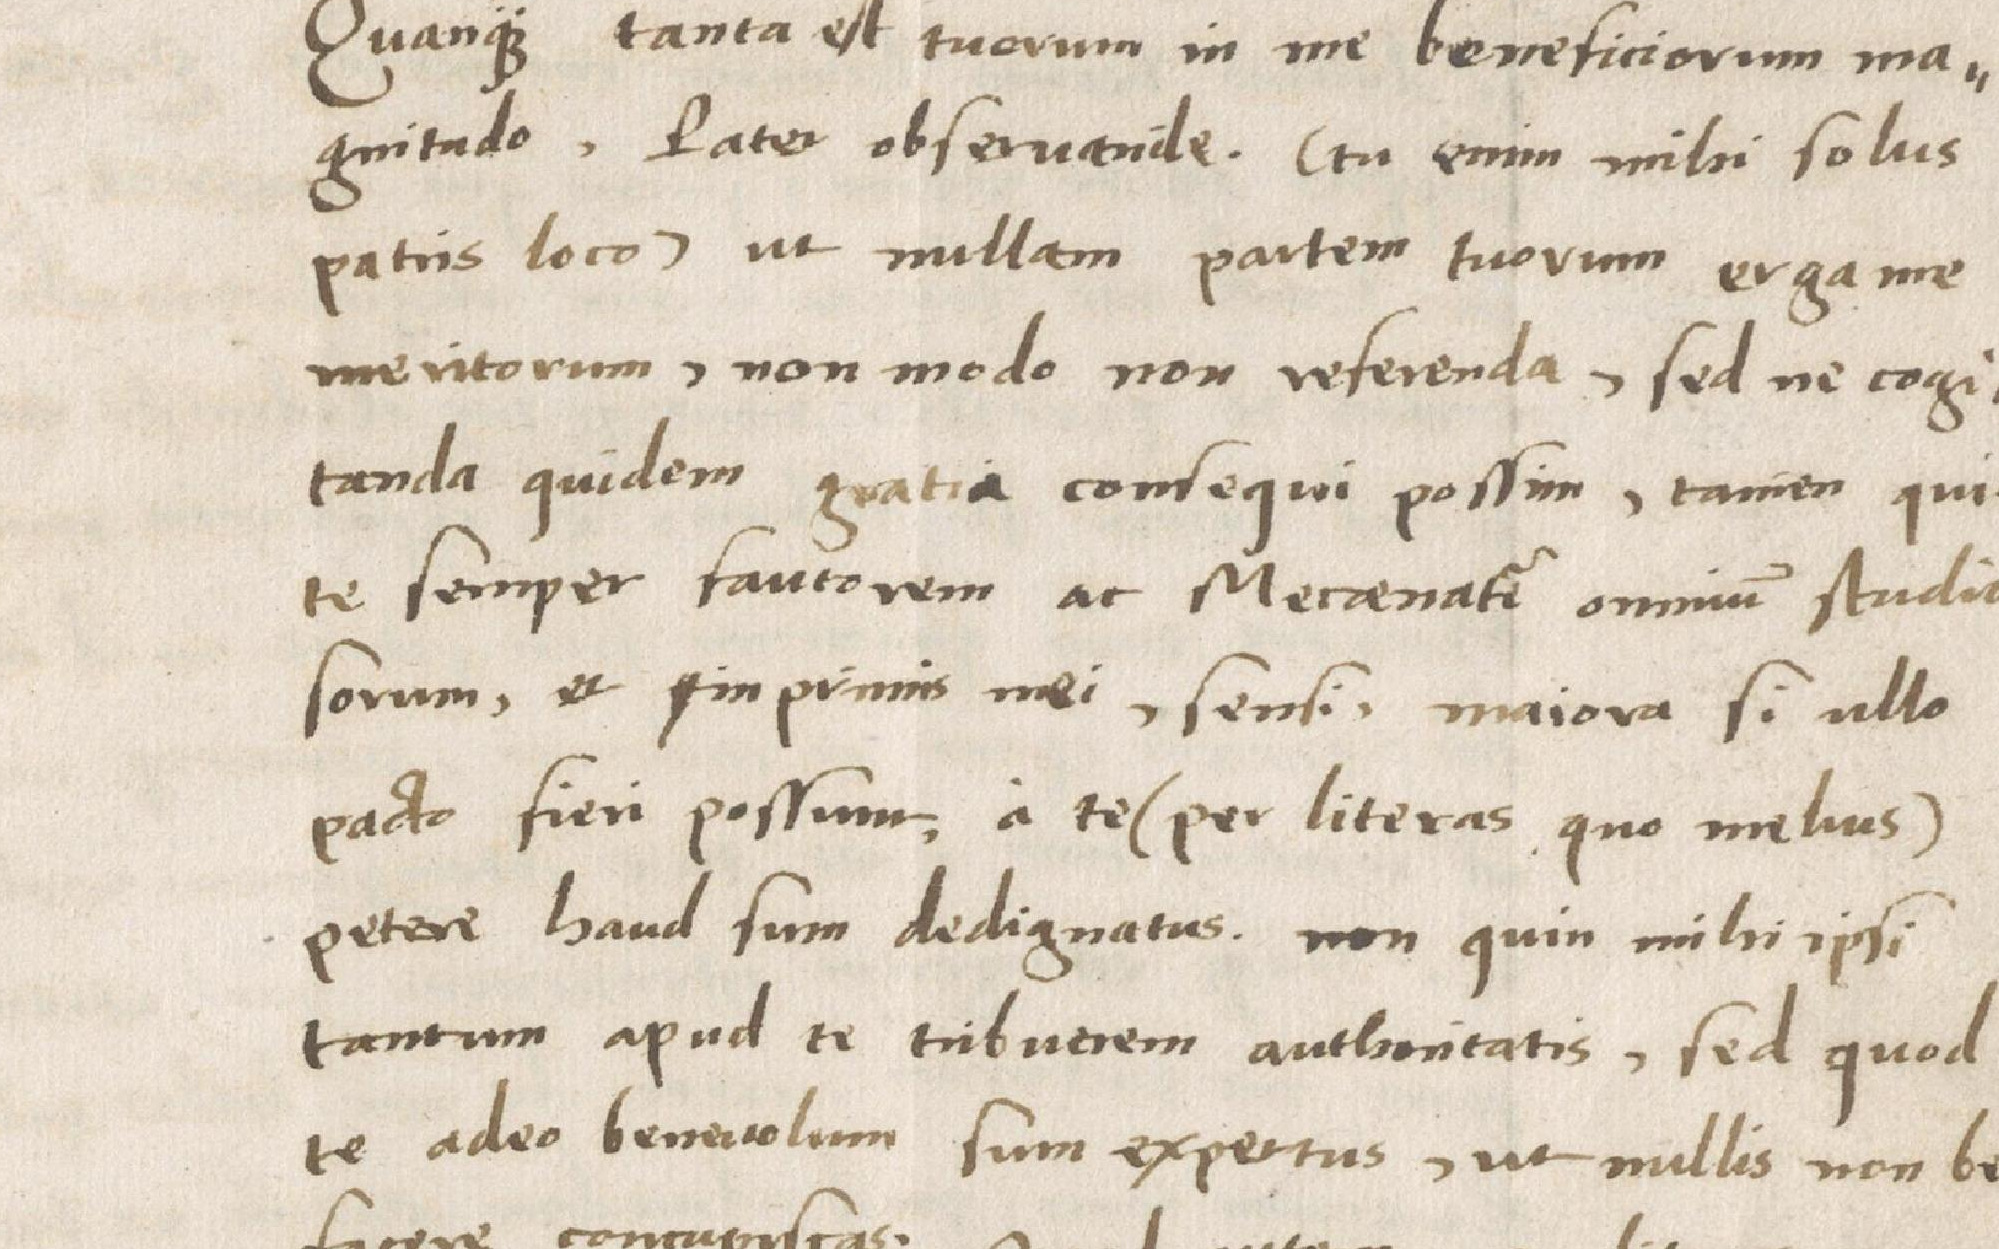 Quanq̃ tanta est tuorum in me beneficiorum ma„
gnitudo, Pater observande. (tu enim mihi solus
patris loco) ut nullam partem tuorum erga me
meritorum, non modo non referenda, sed ne cogi,
tanda quidem gratia consequi possim, tamen qui
te semper fautorem ac Mecænatẽ omniũ studio
sorum, et inprimis mei, sensi, maiora si ullo
pacto fieri possunt, à te (per literas quo melius)
petere haud sum dedignatus. non quin mihi ipsi
tantum apud te tribuerem authoritatis, sed quod
te adeo benevolum sum expertus, ut nullis non be
facere concupiscas.